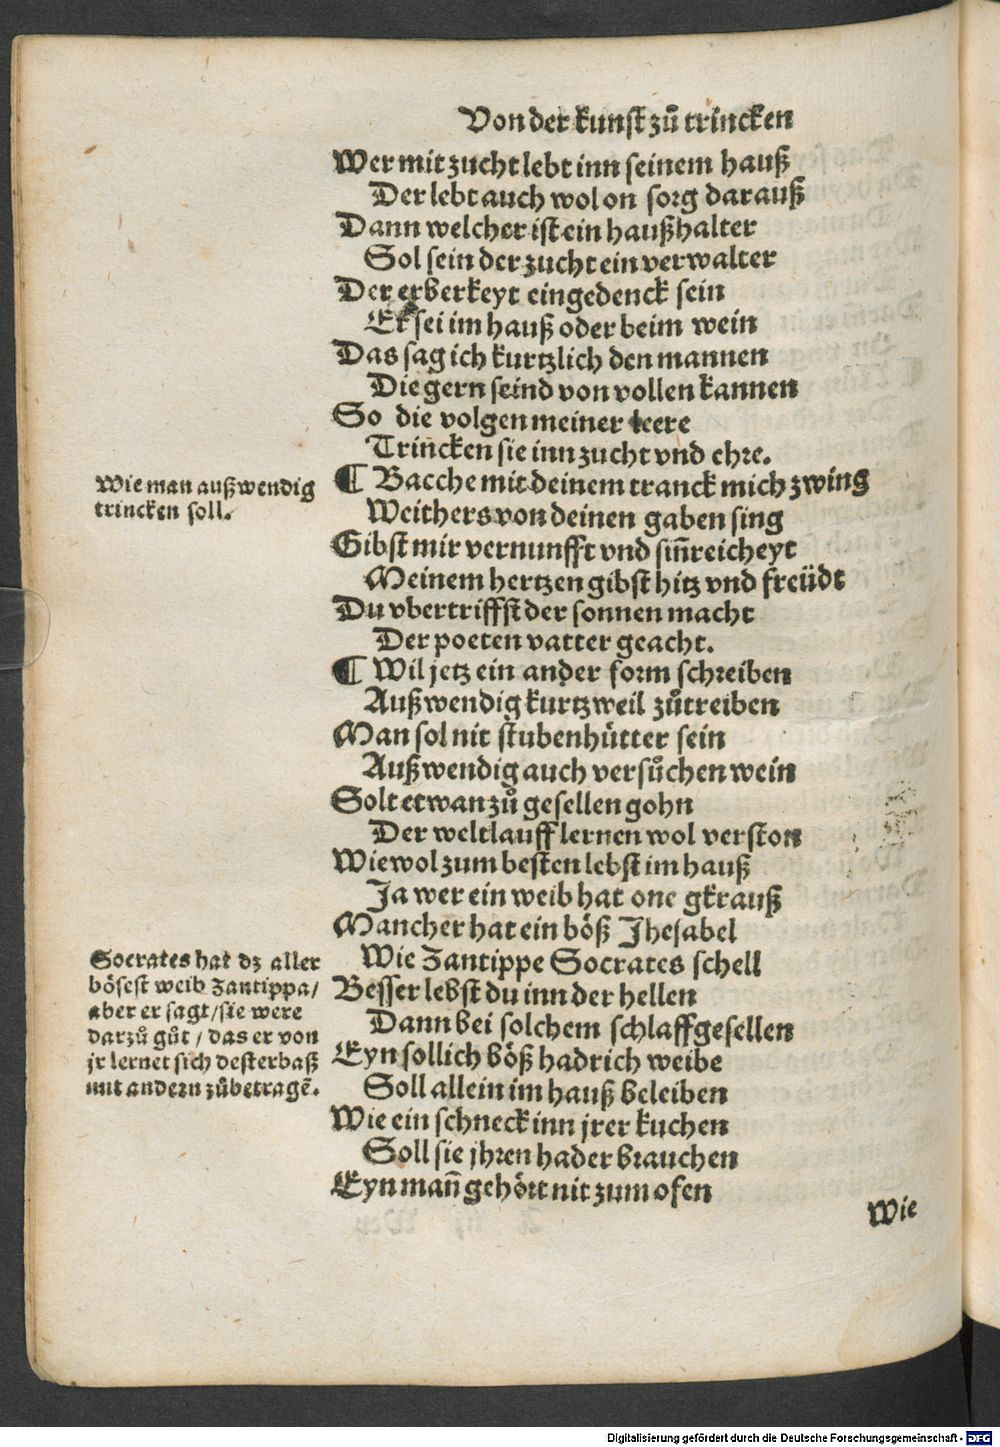 Von der kunst zů trincken
Wer mit zucht lebt inn seinem hauß
Der lebt auch wol on sorg darauß
Dann welcher ist ein haußhalter
Sol sein der zucht ein verwalter
Der erberkeyt eingedenck sein
Er sei im hauß oder beim wein
Das sag ich kurtzlich den mannen
Die gern seind von vollen kannen
So die volgen meiner leere
Trincken sie inn zucht vnd ehre.
Wie man außwendig
trincken soll.
¶ Bacche mit deinem tranck mich zwing
Weithers von deinen gaben sing
Gibst mir vernunfft vnd sin̄reicheyt
Meinem hertzen gibst hitz vnd freüdt
Du vbertriffst der sonnen macht
Der poeten vatter geacht.
¶ Wil jetz ein ander form schreiben
Außwendig kurtzweil zůtreiben
Man sol nit stubenhütter sein
Außwendig auch versůchen wein
Solt etwan zů gesellen gohn
Der weltlauff lernen wol verston
Wiewol zum besten lebst im hauß
Ja wer ein weib hat one gkrauß
Mancher hat ein böß Jhesabel
Wie Zantippe Socrates schell
Besser lebst du inn der hellen
Dann bei solchem schlaffgesellen
Eyn sollich böß hadrich weibe
Soll allein im hauß beleiben
Wie ein schneck inn jrer kuchen
Soll sie jhren hader brauchen
Eyn man̄ gehört nit zum ofen
Socrates hat dz aller
bösest weib Zantippa/
aber er sagt/sie were
darzů gůt/das er von
jr lernet sich desterbaß
mit andern zůbetragē.
Wie
Digitalisierung gefördert durch die Deutsche Forschungsgemeinschaft - DFG